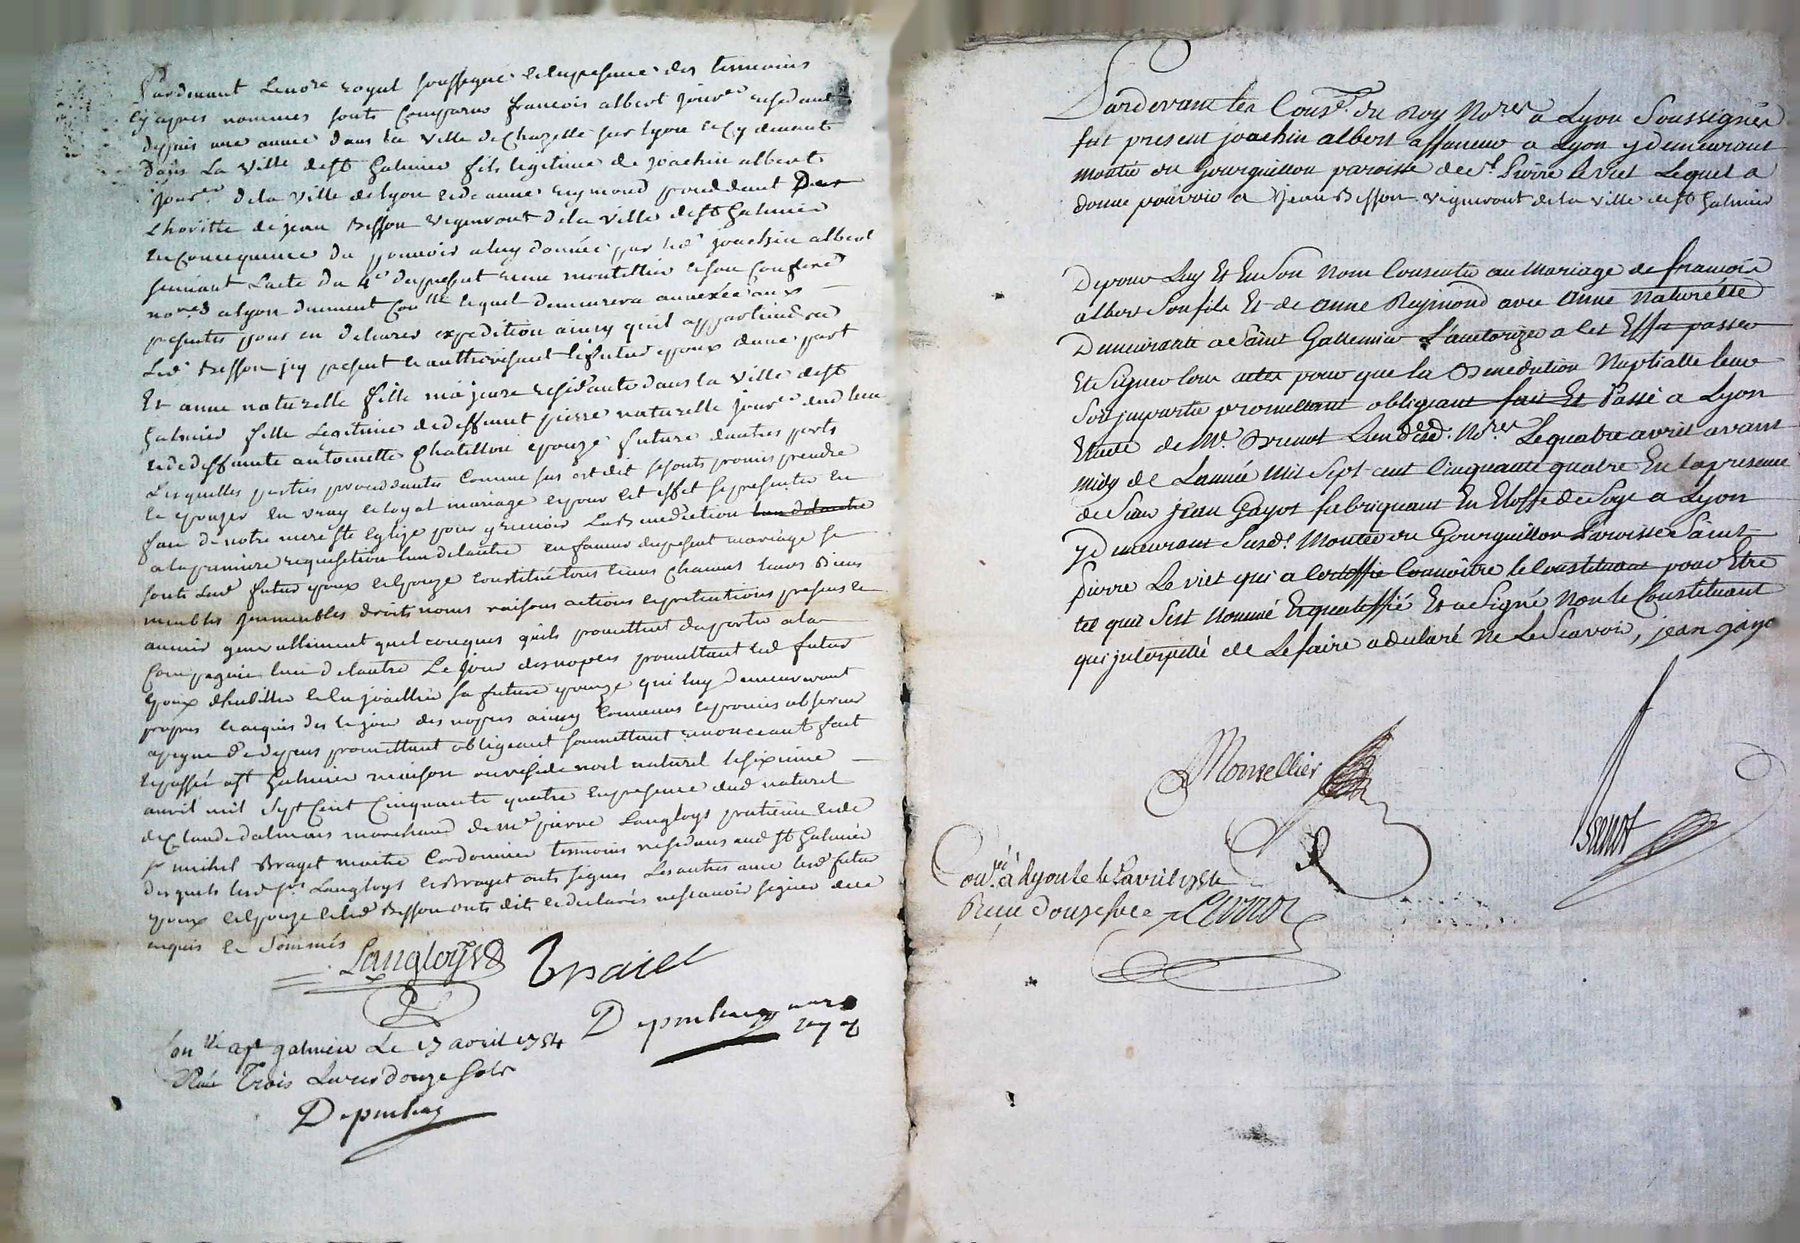 Pardevant Lenore royal soussigné et en presence des temoins
cy apres nommes sonts comparus francois albert jour.er residant
depuis une année dans la ville de Chazelle sur lyon et cy devant
dans la ville de st galmier fils legitime de joachin albert
jour.er de la ville de lyon et de anne reymond procedant De
lhoritte de jean Besson vigneront de la ville de st galmier
en consequence du pouvoir a luy donnée par led. joachin albert
suivant l'acte du 4e du present reçeu montellier et son confrere
nores a lyon duement con.llé lequel demeurera annexée aux
presentes pour en delivrer expedition ainsy quil appartiendra
led. Besson icy present et authorisant le futur epoux d'une part
Et anne naturelle fille majeure residante dans la ville de st
galmier fille legitime de deffunt pierre naturelle jour.er dud lieu
et de deffunte antoinette Chatillon epouze future d'autres parts
Lesquelles parties procedantes comme sus est dit se sonts promis prendre
et epouzer en vray et loyal mariage et pour cet effet se presenter en
face de notre mere ste Eglize pour y recevoir la Benediction
a la premiere requisition lun de lautre en faveur du present mariage se
sonts led. futur epoux et epouze constitué tous et uns chacuns leurs Biens
meubles immeubles droits noms raisons actions et pretentions presens et
avenir generallement quelconques quils promettent d'aporter a la
compagnie lun de lautre Le jour des nopces promettant led futur
epoux d'habiller et en joailler sa future epouze qui luy demeureront
propres et acquis des le jour des nopces ainsy convenus et promis observer
a peyne de depens promettant obligeant soumettant renonceant fait
et passé a st galmier maison ou reside noel naturel le sixieme
avril mil sept cent cinquante quatre en presence dud naturel
de Claude dalmais marchand de me pierre Langloys praticien et de
sr michel Brayet maitre Cordonnier temoins residans aud st galmier
desquels lesd srs Langloys et Brayet onts signes Les autres avec lesd futur
epoux et epouze et led Besson onts dits et declarés ne scavoir signer de ce
enquis et sommés
Langloys
Braiet
Depuuleing nore
royal
Con.llé a st galmier Le 17 avril 1754
Reçu Trois Livres douze sols
Pardevant les Cons.rs du Roy No.res a Lyon Soussignés
fut present joachin albert affaneur a Lyon y demeurant
montée du Gourguillon paroisse de st. Pierre le viel Lequel a
donné pouvoir a Jean Besson vigneront de la ville de st galmier
De pour Luy Et En son nom Consentir au Mariage de françois
albert son fils Et de anne Reymond avec anne Naturelle
Demeurante a Saint Gallemier L'autorizer a cet Effet passer
Et Signer tous actes pour que la Benediction Nuptialle leur
soit impartie promettant obligeant fait Et Passé a Lyon
Etude de Me. Brenot L'un desd. No.res Le quatre avril avant
midy de L'année Mil Sept cent Cinquante quatre En la presence
de Sieur jean Gayot fabriquant En Etoffe de Soye a Lyon
y demeurant susd.e Montée du Gourguillon Paroisse Saint
Pierre Le viel qui a certiffié connoitre le Constituant pour Etre
tel quil s'est Nommé Et qualiffié Et a Signé Non le Constituant
qui interpellé de Le faire a declaré Ne Le Scavoir, jean gayot
Montellier
Brenot
Con.llé a Lyon le 4 avril 1754
Reçu douze sols